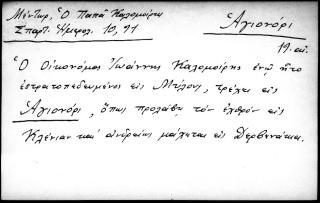 Μέντωρ, Ὁ Παπᾶ Καλομοίρης
Σπαρτ. Ἡμερολ. 10, 71
Ἁγιονόρι
19. αι.
Ὁ Οἰκονόμος Ἰωάννης Καλομοίρης ἐνῷ ἦτο
ἐστρατοπεδευμένος εἰς Μύλους, τρέχει εἰς
Ἁγιονόρι, ὅπως προλάβῃ τὸν ἐχθρὸν εἰς
Κλένιαν καὶ ἀνδρείως μάχεται εἰς Δερβενάκια.